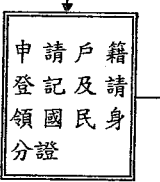 申請戶籍
登記及請
領國民身
分證